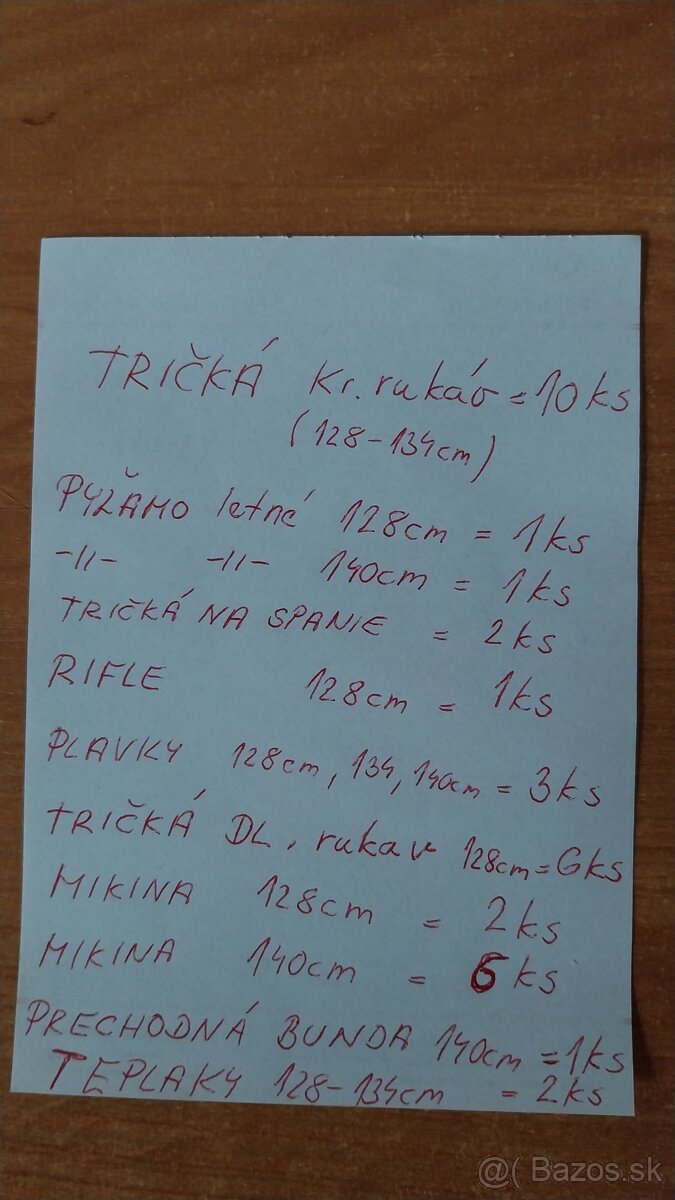 TRIČKÁ Kr. rukáv = 10 ks
(128-134cm)
PYŽAMO letné 128cm = 1 ks
-//- -//- 140cm = 1 ks
TRIČKÁ NA SPANIE = 2 ks
RIFLE 128cm = 1 ks
PLAVKY 128cm, 134, 140cm = 3 ks
TRIČKÁ DL. rukav 128cm = 6 ks
MIKINA 128cm = 2 ks
MIKINA 140cm = 6 ks
PRECHODNÁ BUNDA 140cm = 1 ks
TEPLAKY 128-134cm = 2 ks
@( Bazos.sk